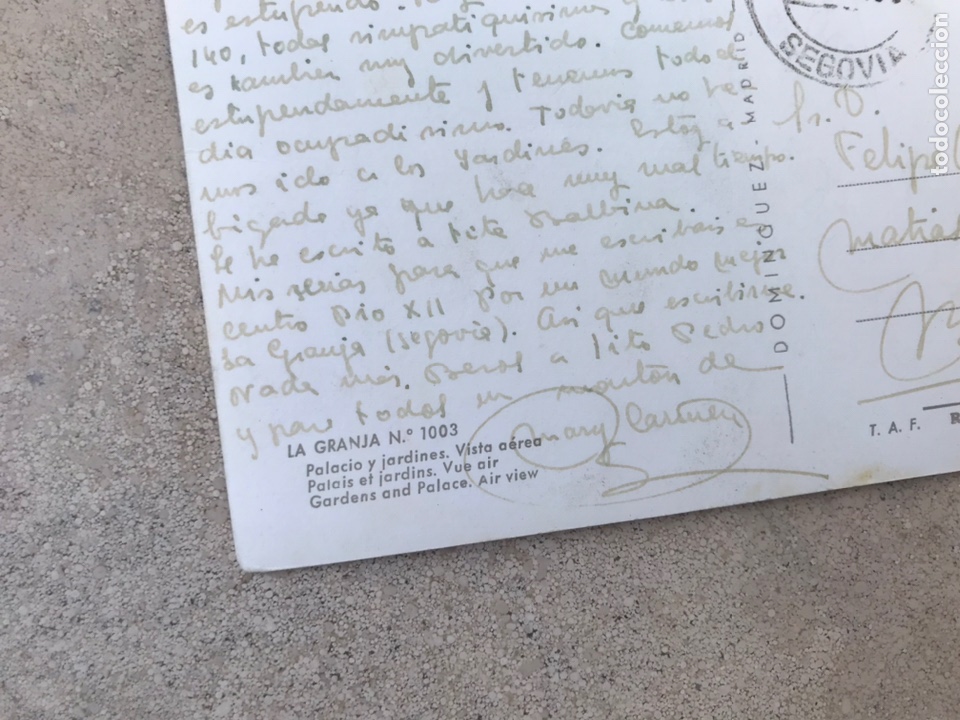 es estupendo.
140, todas simpatiquisimas y
es tambien muy divertido. Comemos
estupendamente y tenemos todo el
dia ocupadisimo. Todavia no he
mos ido a los Jardines. Estoy a
brigada ya que hace muy mal tiempo.
Le he escrito a tita Balbina.
Mis señas para que me escribais es
centro Pio XII por un mundo mejor
La Granja (Segovia). Asi que escribirme.
Nada más. Besos a tito Pedro
y para todos un montón de
Mary Carmen
LA GRANJA N.º 1003
Palacio y jardines. Vista aérea
Palais et jardins. Vue air
Gardens and Palace. Air view
DOMINGUEZ - MADRID
SEGOVIA
Sr. D.
Felipe
T. A. F.
todocoleccion